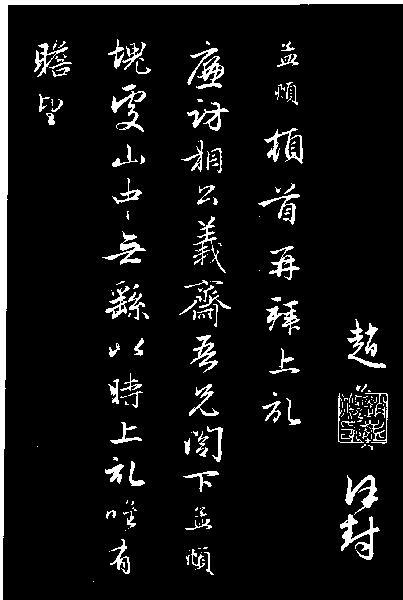 趙 謹封
孟頫頓首再拜上記
廉訪相公義齋吾兄閣下孟頫
塊處山中無繇以時上記唯有
瞻望